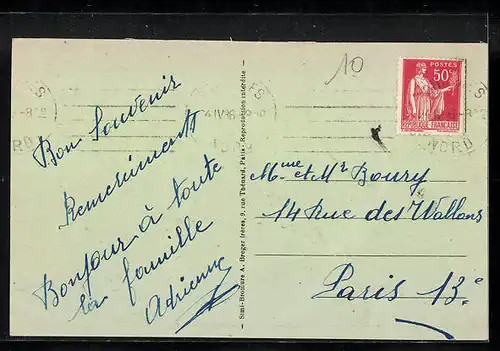 Bon Souvenir
Remerciments
Bonjour à toute
la famille
Adrienne
Simi-Bromure A. Breger frères, 9, rue Thénard, Paris - Reproduction interdite -
10
POSTES
50c
REPUBLIQUE FRANÇAISE
NORD
Mme et Mr Boury
14 Rue des Wallons
Paris 13e